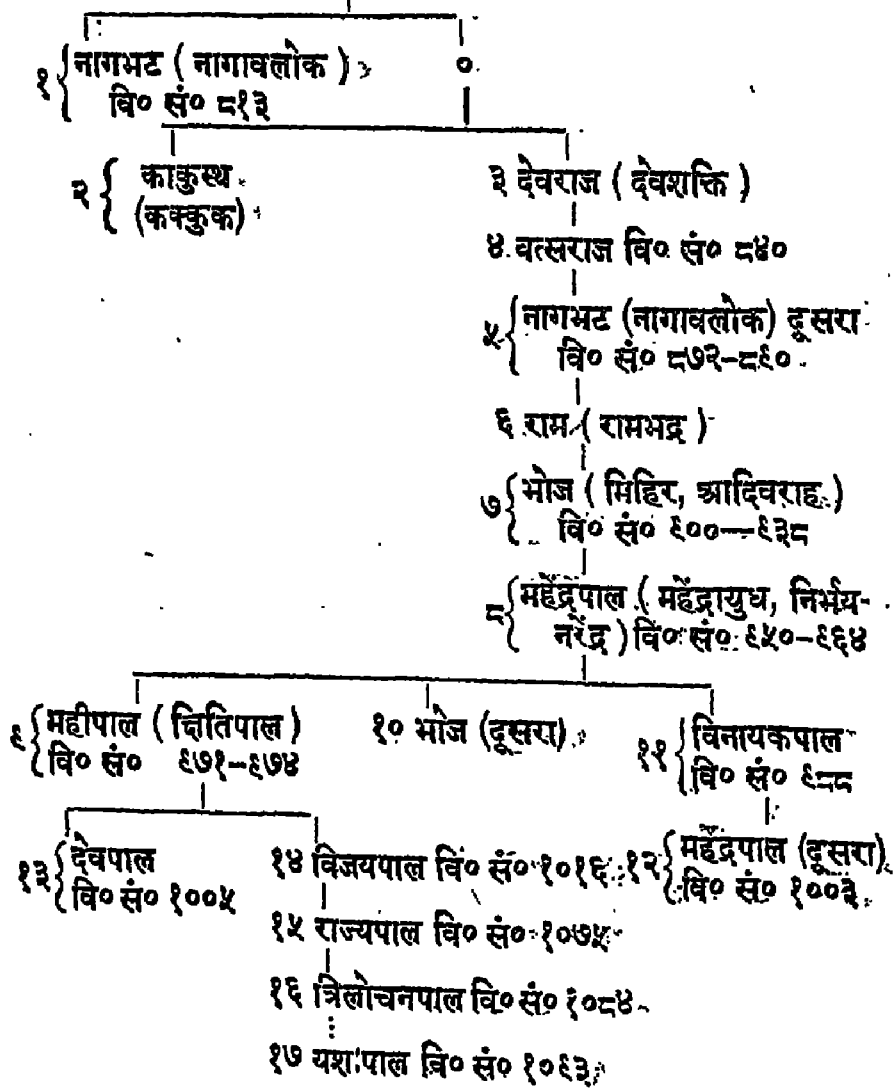 १ { नागभट ( नागावलोक ) ०
वि० सं० ८१३
२ { काकुस्थ
(कक्कुक)
३ देवराज ( देवशक्ति )
४ वत्सराज वि० सं० ८४०
५ { नागभट (नागावलोक) दूसरा
वि० सं० ८७२–८९०
६ राम ( रामभद्र )
७ { भोज ( मिहिर, आदिवराह )
वि० सं० ९००—९३८
८ { महेंद्रपाल ( महेंद्रायुध, निर्भय-
नरेंद्र ) वि० सं० ९५०–९६४
९ { महीपाल ( क्षितिपाल )
वि० सं० ९७१–९७४
१० भोज (दूसरा)
११ { विनायकपाल
वि० सं० ९८८
१३ { देवपाल
वि० सं० १००५
१४ विजयपाल वि० सं० १०१६
१२ { महेंद्रपाल (दूसरा)
वि० सं० १००३
१५ राज्यपाल वि० सं० १०७५
१६ त्रिलोचनपाल वि० सं० १०८४
१७ यशःपाल वि० सं० १०९३